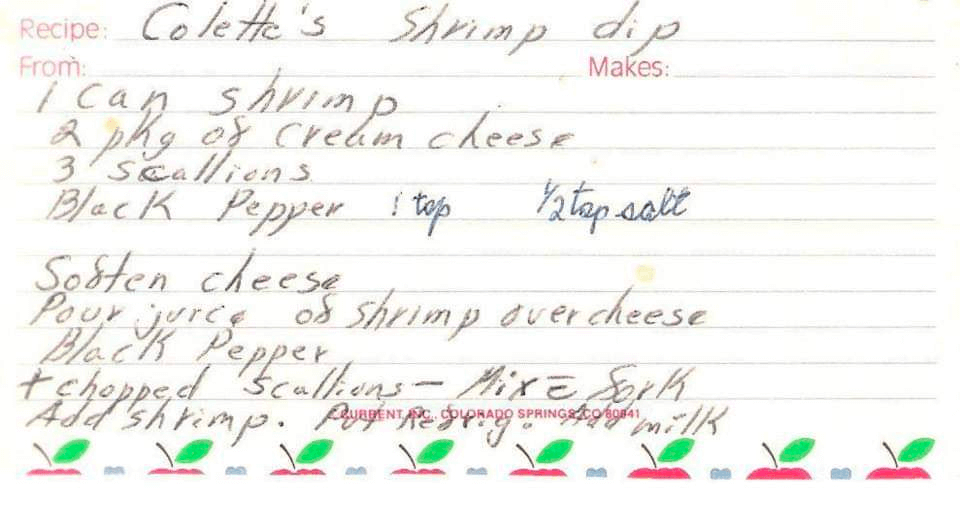 Recipe: Colette's Shrimp dip
From: Makes:
1 Can shrimp
2 pkg of cream cheese
3 scallions
Black Pepper 1 tsp 1/2 tsp salt
Soften cheese
Pour juice of shrimp over cheese
Black Pepper
+ chopped scallions — Mix c̄ Fork
Add shrimp. Put Refrig. Add milk
CURRENT, INC., COLORADO SPRINGS, CO 80941